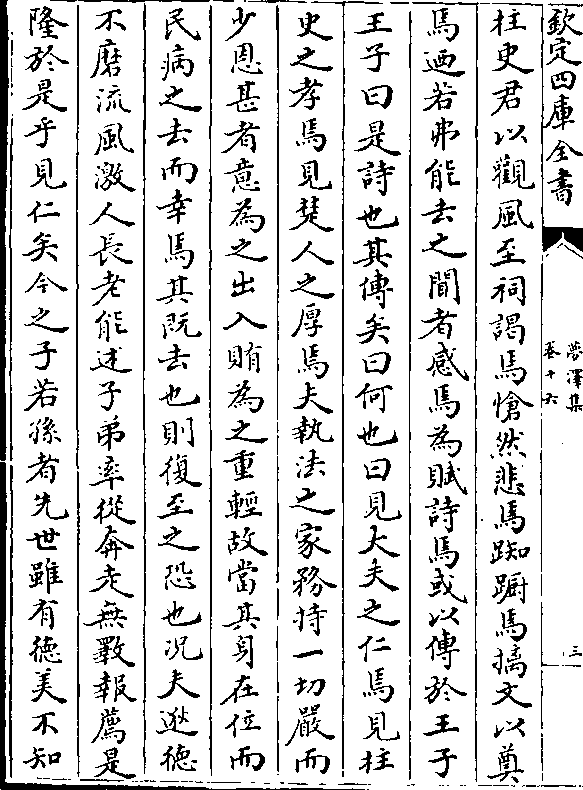 欽定四庫全書
夢澤集
卷十六
三
柱史君以觀風至祠謁焉愴然悲焉踟蹰焉摛文以奠
焉迺若弗能去之聞者感焉為賦詩焉或以傳於王子
王子曰是詩也其傳矣曰何也曰見大夫之仁焉見柱
史之孝焉見楚人之厚焉夫執法之家務持一切嚴而
少恩甚者意為之出入賄為之重輕故當其身在位而
民病之去而幸焉其既去也則復至之恐也况夫逖德
不磨流風激人長老能述子弟率從奔走無斁報薦是
隆於是乎見仁矣今之子若孫者先世雖有德美不知